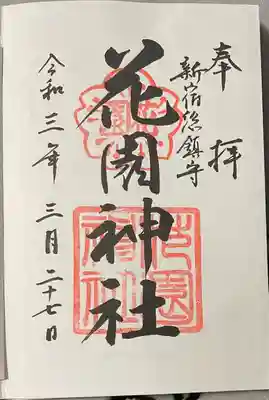 奉拝
新宿総鎮守
花園神社
令和三年三月二十七日
花園神社